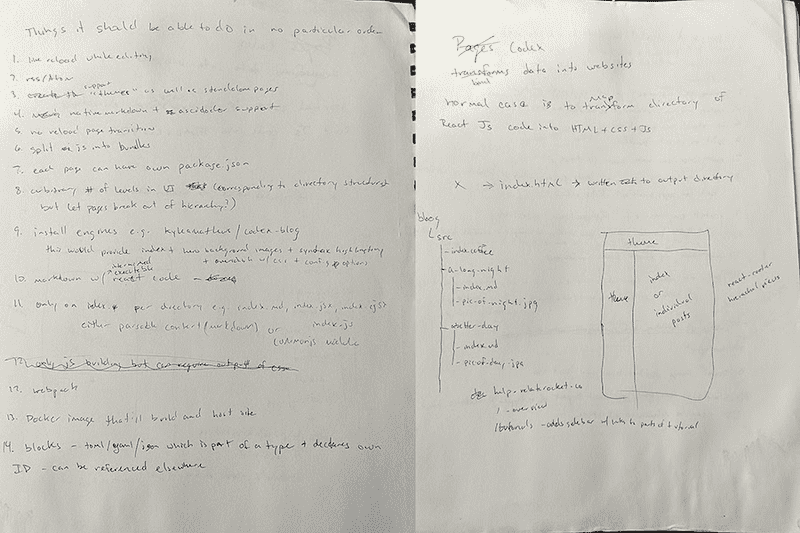 Things it should be able to do in no particular order
1. live reload while editing
2. rss/Atom
3. support "themes" as well as standalone pages
4. native markdown + asciidoctor support
5. no reload page transition
6. split js into bundles
7. each page can have own package.json
8. arbitrary # of levels in UI (corresponding to directory structure
but let pages break out of hierarchy?)
9. install engines e.g. kyleamathews/codex-blog
this would provide index + hero background images + syntax highlighting
+ overridable w/ css + config options
10. markdown w/ intermingled executable react code
11. only on index.* per directory e.g. index.md, index.jsx, index.cjsx
either parsable content (markdown) or index.js
commonjs module
12. webpack
13. Docker image that'll build and host site
14. blocks - toml/yaml/json which is part of a type + declares own
ID - can be referenced elsewhere
Pages Codex
transforms data into websites
html
normal case is to map transform directory of
React Js code into HTML + CSS + Js
X → index.html → written to output directory
blog
src
- a-long-night
- index.md
- pic-of-night.jpg
- better-day
- index.md
- pic-of-day.jpg
theme
theme
index
or
individual
posts
react-router
hierarchal views
/ - overview
/tutorials - adds sidebar w/ links to parts of tutorial